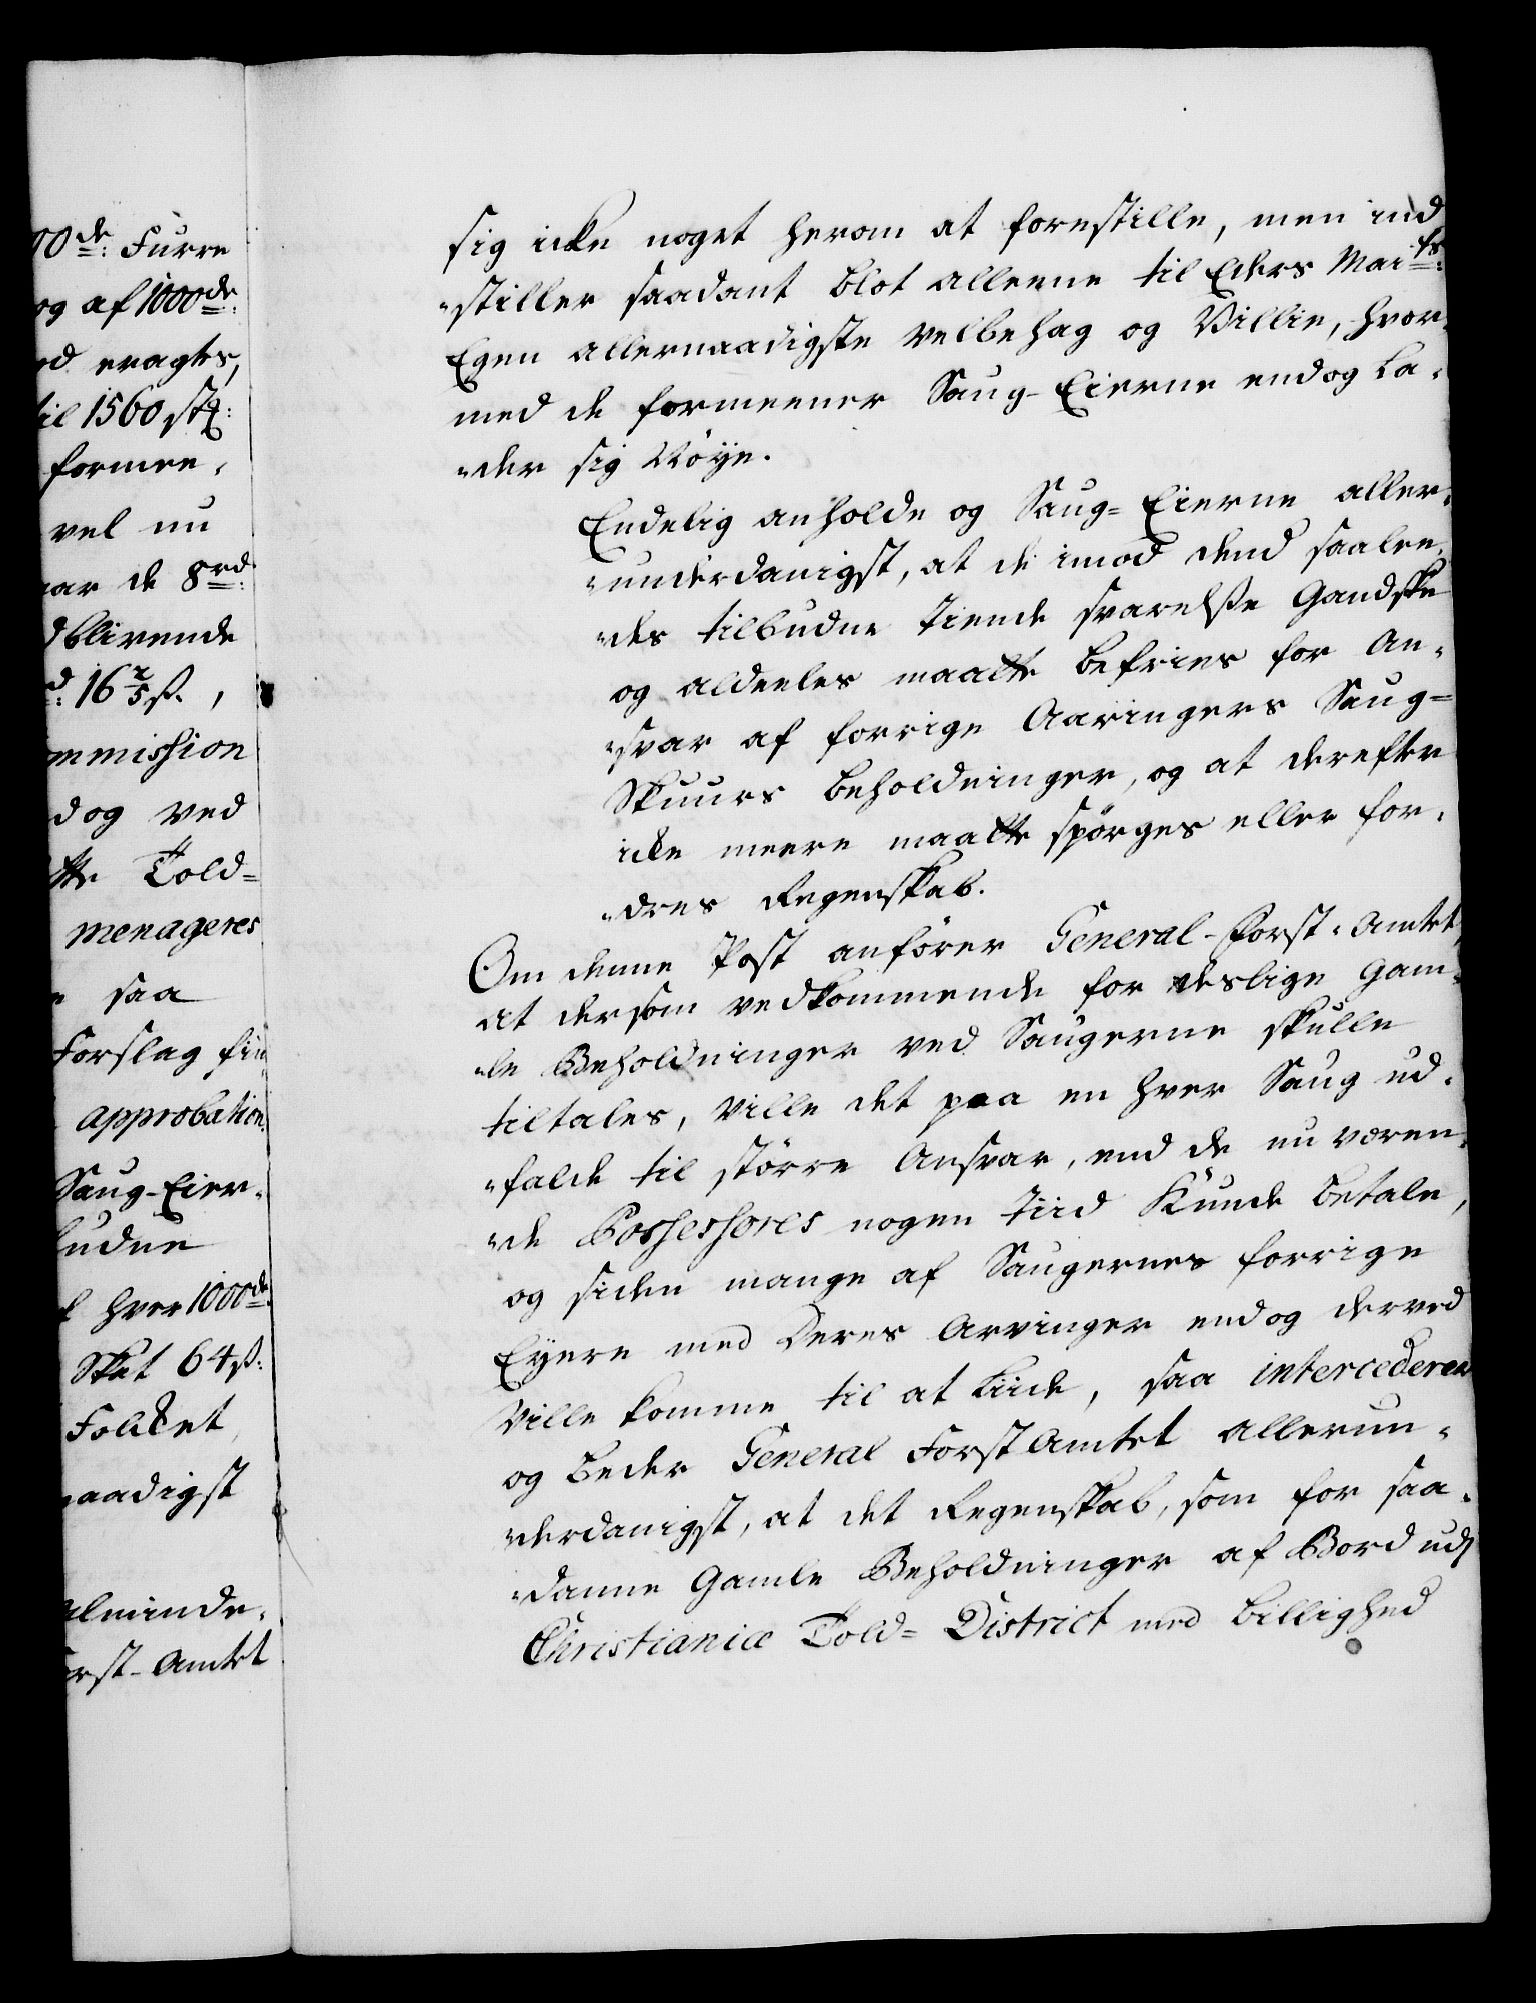 00de: Furre
og af 1000de:
ed eragts,
til 1560 stk:
formee-
vel nu
aar de 8rd:
dblivende
d: 16 2/5 ß.,
mmission
dog ved
tte Told=
menageres
saa
Forslag fin-
approbation.
Saug-Eier-
budne
hver 1000de:
Sket 64ß:
Folket,
naadigst
alminde-
orst-Amtet
sig icke noget herom at forestille, men ind
-stiller saadant blot alleene til Eders Maits:
Egen allernaadigste velbehag og Villie, hvor-
med de formeener Saug-Eierne endog La-
-der sig Nöye.
Endelig anholde og Saug=Eierne aller-
-underdanigst, at de imod dend saalee-
-des tilbudne tiende svarelße Gandske
og aldeeles maatte befries for An-
-svar af forrige Aaringers Saug=
Skuurs beholdninger, og at derefter
icke meere maatte spörges eller for-
-dres Regenskab.
Om denne Post anförer General-Forst-Amtet,
at dersom vedkommende for deslige Gam-
-le Beholdninger ved Saugerne skulle
tiltales, ville det paa en hver Saug ud-
-falde til större Ansvar, end de nu væren-
-de Possessores nogen tiid Kunde betale,
og siden mange af Saugernes forrige
Eyere med Deres Arvinger endog derved
Ville komme til at Liide, saa intercederer
og beder General Forst Amtet allerun-
-derdanigst, at det Regenskab, som for saa-
-danne Gamle Beholdninger af Bord udj
Christianiæ Told=District med billighed